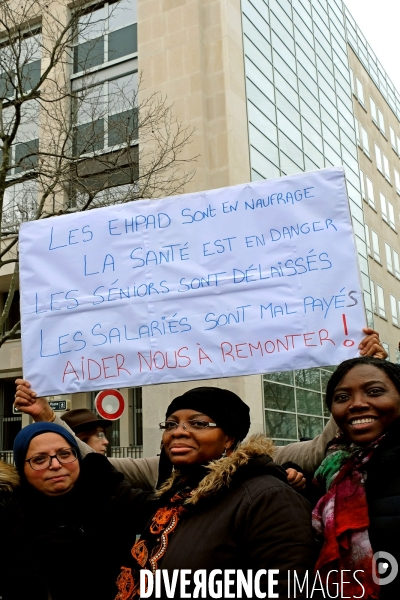 LES EHPAD SONT EN NAUFRAGE
LA SANTÉ EST EN DANGER
LES SÉNIORS SONT DÉLAISSÉS
LES SALARIÉS SONT MAL PAYÉS
AIDER NOUS À REMONTER !
DIVERGENCE-IMAGES